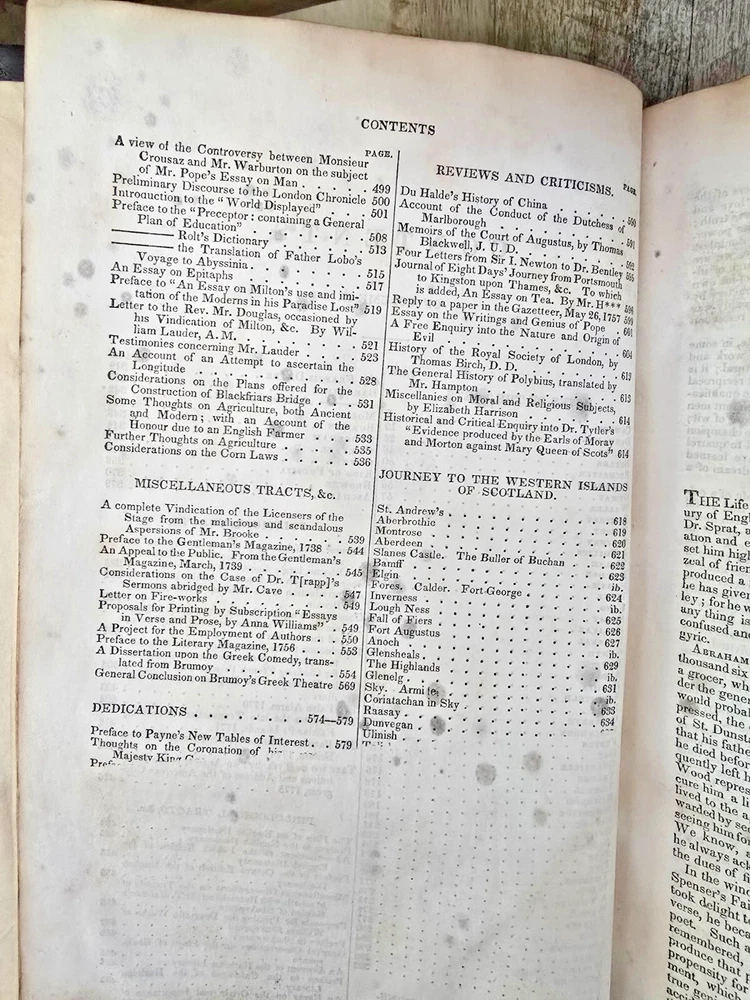 CONTENTS
PAGE.
A view of the Controversy between Monsieur
Crousaz and Mr. Warburton on the subject
of Mr. Pope's Essay on Man . . . . . 499
Preliminary Discourse to the London Chronicle 500
Introduction to the "World Displayed" . . 501
Preface to the "Preceptor: containing a General
Plan of Education" . . . . . . . 508
——— Rolt's Dictionary . . . . . . 513
——— the Translation of Father Lobo's
Voyage to Abyssinia . . . . . . . 515
An Essay on Epitaphs . . . . . . . 517
Preface to "An Essay on Milton's use and imi-
tation of the Moderns in his Paradise Lost" 519
Letter to the Rev. Mr. Douglas, occasioned by
his Vindication of Milton, &c. By Wil-
liam Lauder, A. M. . . . . . . . 521
Testimonies concerning Mr. Lauder . . . . 523
An Account of an Attempt to ascertain the
Longitude . . . . . . . . . 528
Considerations on the Plans offered for the
Construction of Blackfriars Bridge . . . 531
Some Thoughts on Agriculture, both Ancient
and Modern; with an Account of the
Honour due to an English Farmer . . . 533
Further Thoughts on Agriculture . . . . 535
Considerations on the Corn Laws . . . . 536
MISCELLANEOUS TRACTS, &c.
A complete Vindication of the Licensers of the
Stage from the malicious and scandalous
Aspersions of Mr. Brooke . . . . . 539
Preface to the Gentleman's Magazine, 1738 . 544
An Appeal to the Public. From the Gentleman's
Magazine, March, 1739 . . . . . . 545
Considerations on the Case of Dr. T[rapp]'s
Sermons abridged by Mr. Cave . . . . 547
Letter on Fire-works . . . . . . . 549
Proposals for Printing by Subscription "Essays
in Verse and Prose, by Anna Williams" . 549
A Project for the Employment of Authors . . 550
Preface to the Literary Magazine, 1756 . . 553
A Dissertation upon the Greek Comedy, trans-
lated from Brumoy . . . . . . . 554
General Conclusion on Brumoy's Greek Theatre 569
DEDICATIONS . . . . . . . 574—579
Preface to Payne's New Tables of Interest . . 579
Thoughts on the Coronation of
Majesty King
REVIEWS AND CRITICISMS.
PAGE.
Du Halde's History of China . . . . . 560
Account of the Conduct of the Dutchess of
Marlborough . . . . . . . . 591
Memoirs of the Court of Augustus, by Thomas
Blackwell, J. U. D. . . . . . . . 592
Four Letters from Sir I. Newton to Dr. Bentley 595
Journal of Eight Days' Journey from Portsmouth
to Kingston upon Thames, &c. To which
is added, An Essay on Tea. By Mr. H*** 596
Reply to a paper in the Gazetteer, May 26, 1757 599
Essay on the Writings and Genius of Pope . 601
A Free Enquiry into the Nature and Origin of
Evil . . . . . . . . . . 604
History of the Royal Society of London, by
Thomas Birch, D. D. . . . . . . 613
The General History of Polybius, translated by
Mr. Hampton . . . . . . . . 613
Miscellanies on Moral and Religious Subjects,
by Elizabeth Harrison . . . . . . 614
Historical and Critical Enquiry into Dr. Tytler's
"Evidence produced by the Earls of Moray
and Morton against Mary Queen of Scots" 614
JOURNEY TO THE WESTERN ISLANDS
OF SCOTLAND.
St. Andrew's . . . . . . . . . 618
Aberbrothic . . . . . . . . . 619
Montrose . . . . . . . . . . 620
Aberdeen . . . . . . . . . . 621
Slanes Castle. The Buller of Buchan . . . 622
Bamff . . . . . . . . . . . 623
Elgin . . . . . . . . . . . ib.
Fores. Calder. Fort George . . . . . 624
Inverness . . . . . . . . . . ib.
Lough Ness . . . . . . . . . 625
Fall of Fiers . . . . . . . . . 626
Fort Augustus . . . . . . . . . 627
Anoch . . . . . . . . . . . ib.
Glensheals . . . . . . . . . . 629
The Highlands . . . . . . . . . ib.
Glenelg . . . . . . . . . . . 631
Sky. Armidel . . . . . . . . . ib.
Coriatachan in Sky . . . . . . . 633
Raasay . . . . . . . . . . . 634
Dunvegan
Ulinish
THE Life
ury of Engl
Dr. Sprat, a
ation and e
set him high
zeal of frien
produced a
he has given
ley; for he w
any thing is
confused and
gyric.
ABRAHAM
thousand six
a grocer, wh
der the gener
would probal
pressed, the c
of St. Dunsta
that his fathe
he died befor
quently left h
Wood repres
cure him a li
lived to the a
warded by se
seeing him for
We know, a
he always ack
the dues of fi
In the wind
Spenser's Fai
took delight to
verse, he beca
poet. Such a
remembered,
produce that p
propensity for
ment, which
true gen